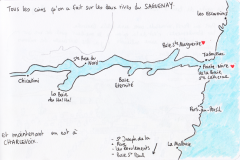 Tous les coins qu'on a fait sur les deux rives du SAGUENAY
Les Escoumins
Baie Ste Marguerite
Ste Rose du Nord
Tadoussac
Chicoutimi
Baie Eternité
La Baie du Ha! Ha!
Pointe Noire
de la Baie
Ste Catherine
Port-au-Persil
La Malbaie
Et maintenant on est à
CHARLEVOIX
- St Joseph de la Rive
- Les Eboulements
- Baie St Paul